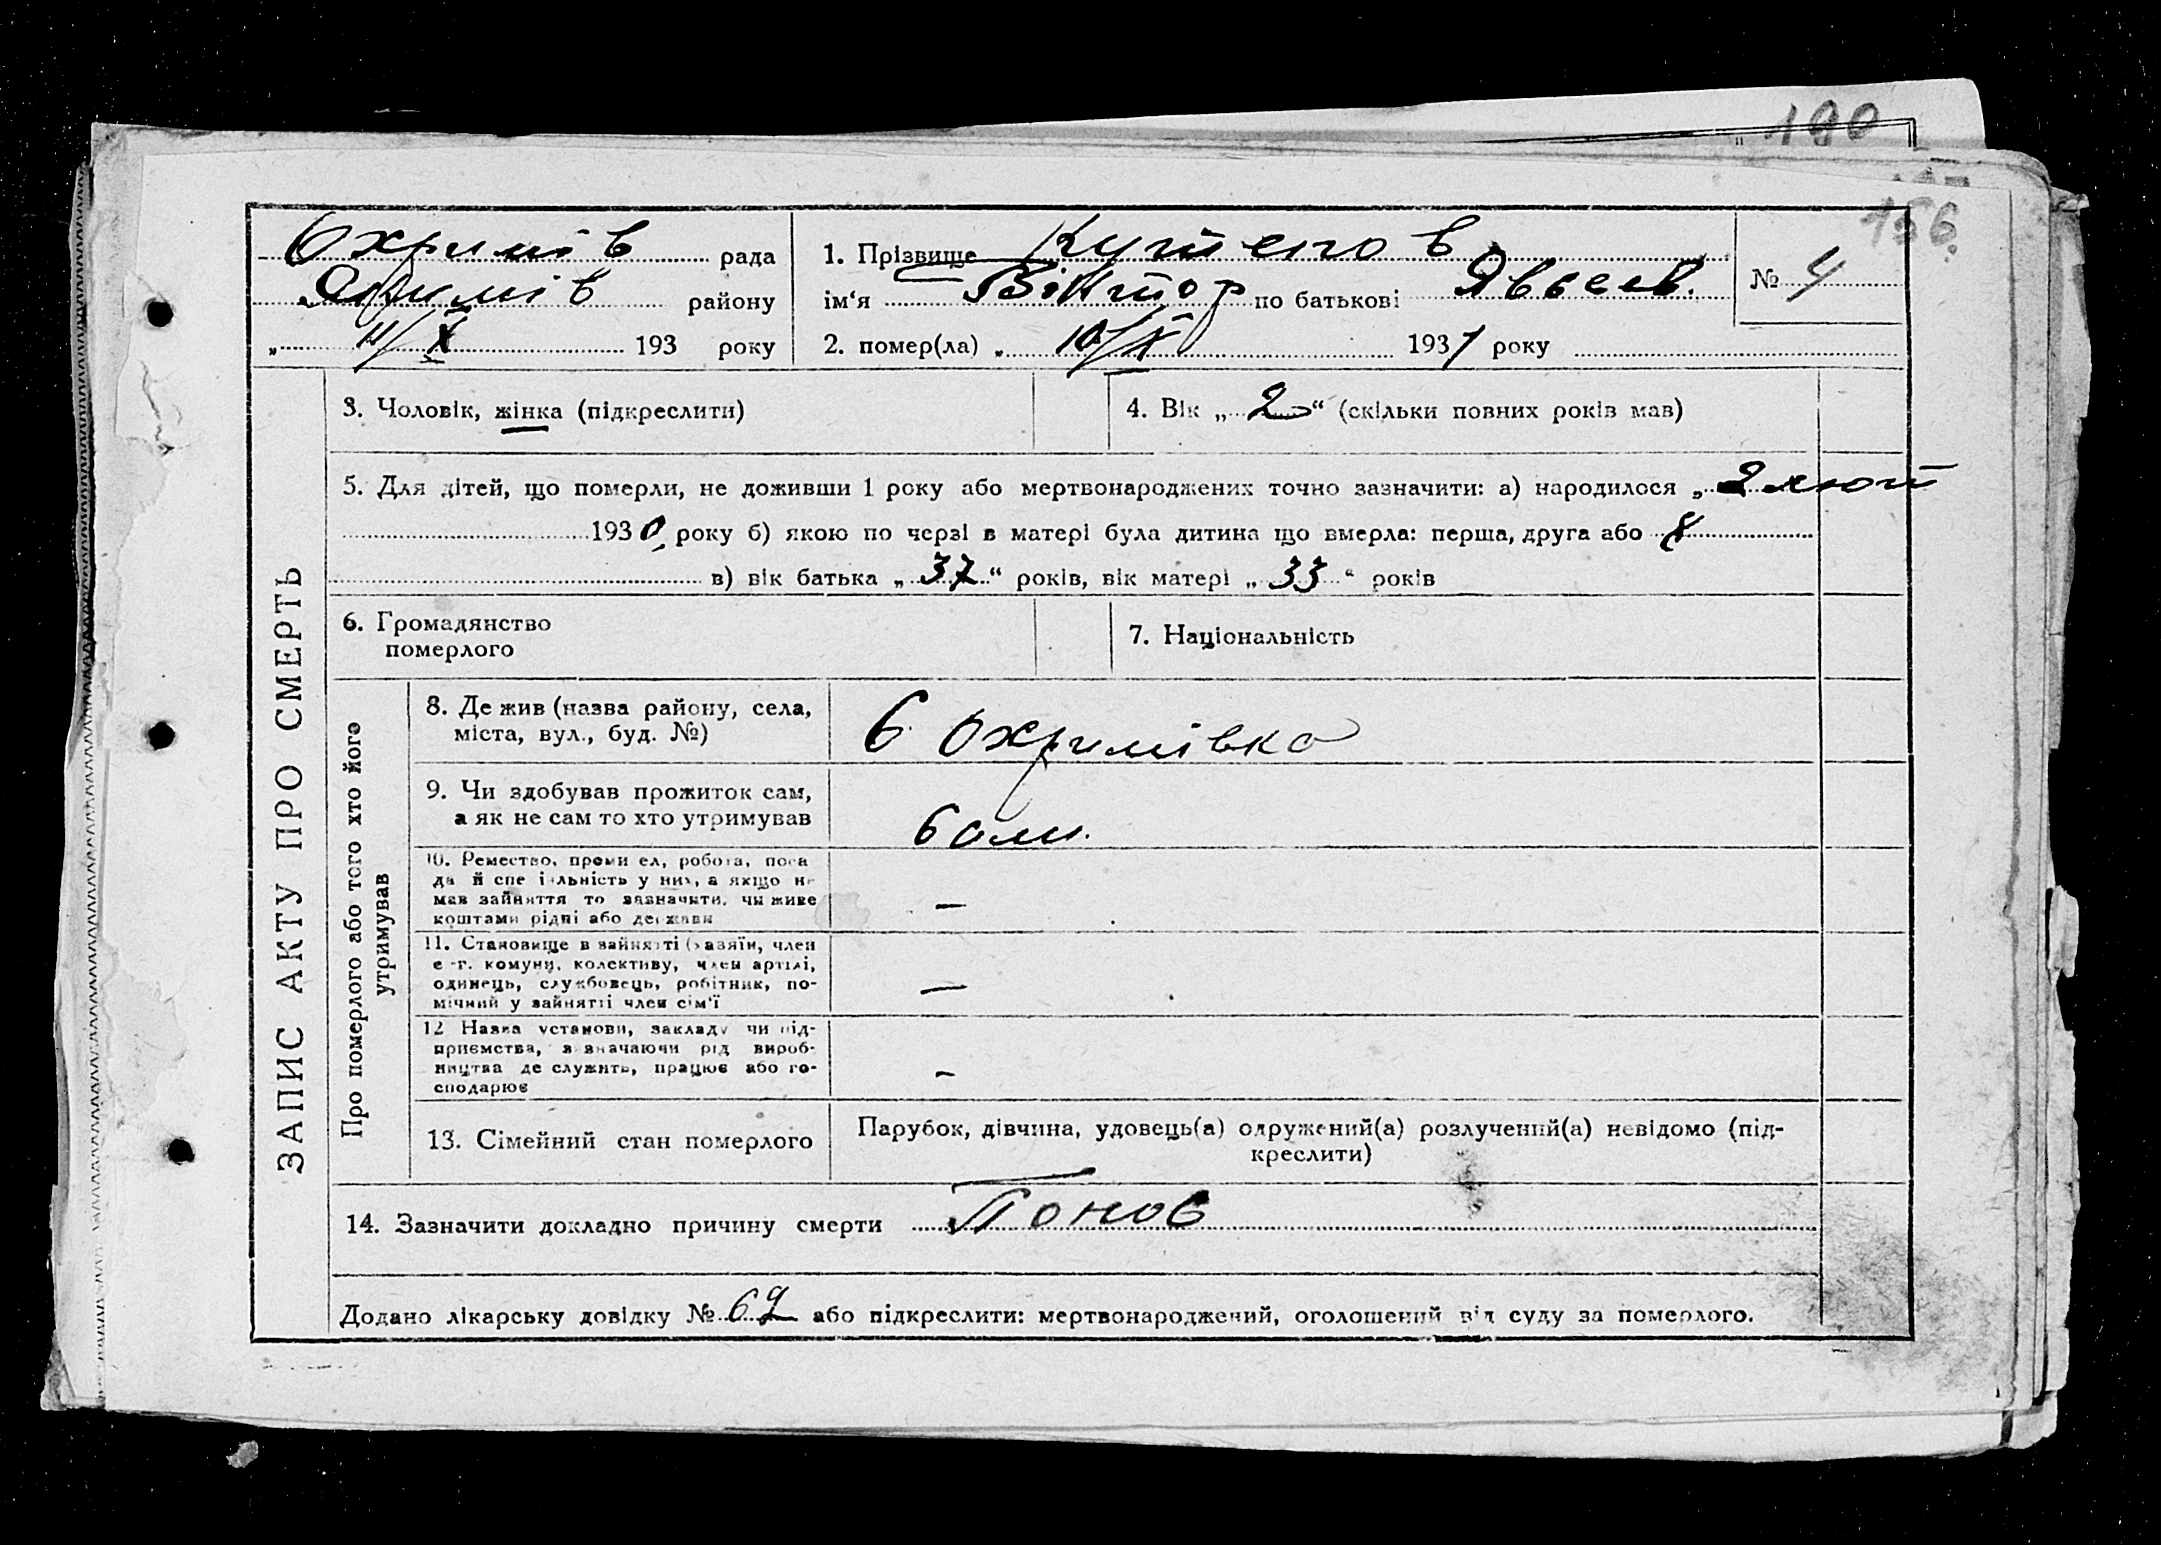 190
156.
Охримів рада
Якимів району
„ 11/X 193 року
1. Прізвище Кутепов
ім‘я Віктор по батькові Явсеев.
2. помер(ла) „ 10/X 1931 року
№ 4
ЗАПИС АКТУ ПРО СМЕРТЬ
3. Чоловік, жінка (підкреслити)
4. Вік „ 2 “ (скільки повних років мав)
5. Для дітей, що померли, не доживши 1 року або мертвонароджених точно зазначити: а) народилося „ 2 лют
1930 року б) якою по черзі в матері була дитина що вмерла: перша, друга або
в) вік батька „ 37 “ років, вік матері „ 33 “ років
6. Громадянство
померлого
7. Національність
Про померлого або того хто його
утримував
8. Де жив (назва району, села,
міста, вул., буд. №)
Охримівка
9. Чи здобував прожиток сам,
а як не сам то хто утримував
10. Ремество, промисел, робота, поса
да й спеціальність у них, а якщо не
мав зайняття то зазначити, чи живе
коштами рідні або держави
–
11. Становище в зайнятті (хазяїн, член
с-г. комуни, колективу, член артілі,
одинець, службовець, робітник, по-
мічний у зайнятті член сім‘ї
–
12 Назва установи, закладу чи під-
приємства, зазначаючи рід вироб-
ництва де служить, працює або го-
сподарює
–
13. Сімейний стан померлого
Парубок, дівчина, удовець(а) одружений(а) розлучений(а) невідомо (під-
креслити)
14. Зазначити докладно причину смерти Понос
Додано лікарську довідку № 69 або підкреслити: мертвонароджений, оголошений від суду за померлого.